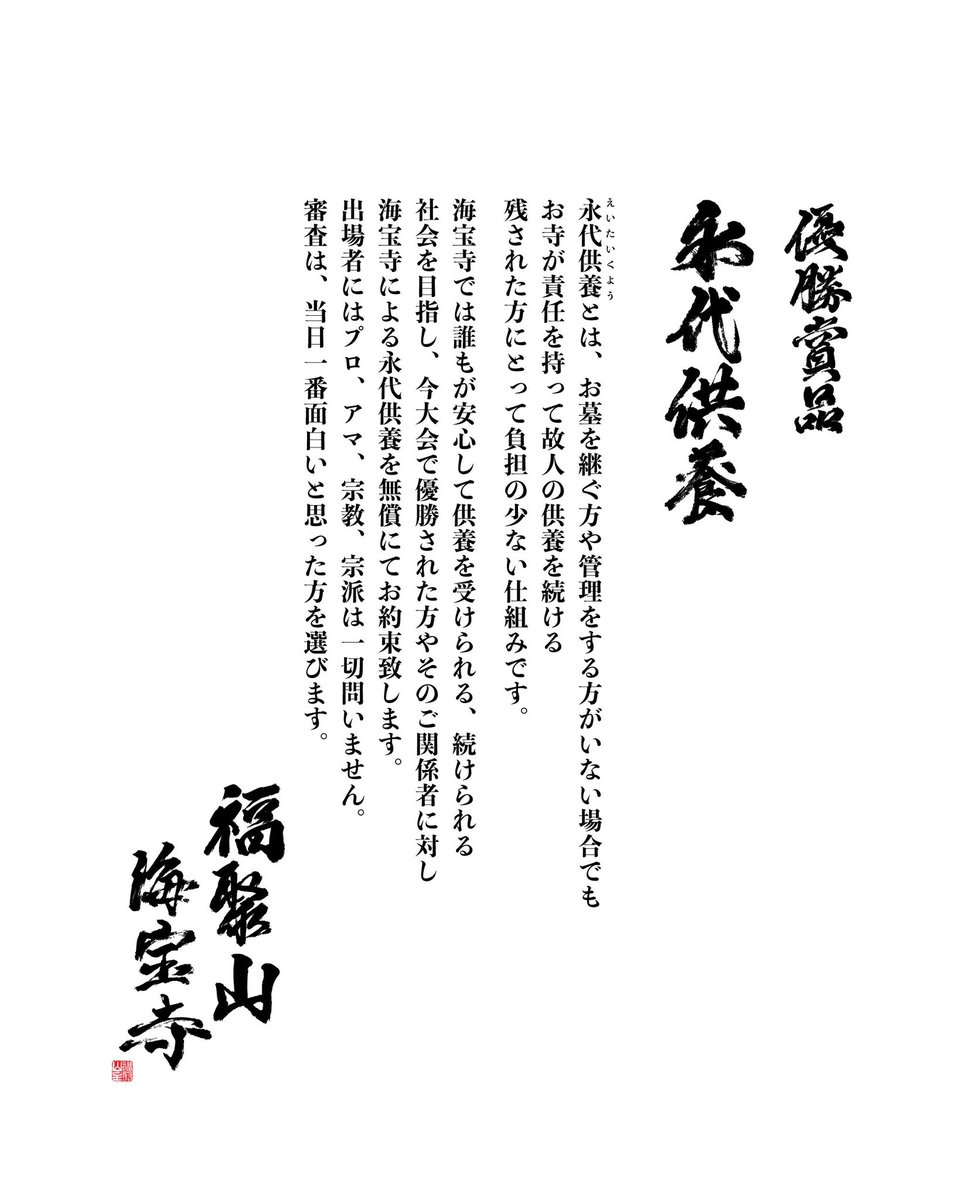 優勝賞品
永代供養
えいたいくよう
永代供養とは、お墓を継ぐ方や管理をする方がいない場合でも
お寺が責任を持って故人の供養を続ける
残された方にとって負担の少ない仕組みです。
海宝寺では誰もが安心して供養を受けられる、続けられる
社会を目指し、今大会で優勝された方やそのご関係者に対し
海宝寺による永代供養を無償にてお約束致します。
出場者にはプロ、アマ、宗教、宗派は一切問いません。
審査は、当日一番面白いと思った方を選びます。
福聚山
海宝寺